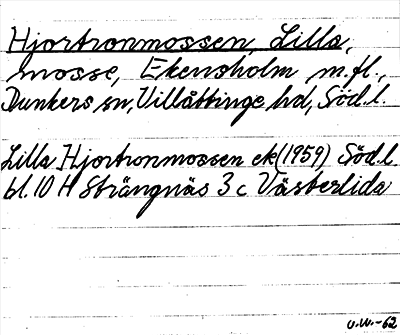 Hjortronmossen, Lilla,
mosse, Ekensholm m.fl.,
Dunkers sn, Villåttinge hd, Söd.l.
Lilla Hjortronmossen ek (1959) Söd.l.
bl. 10 H Strängnäs 3 c Västerlida
U.W.-62